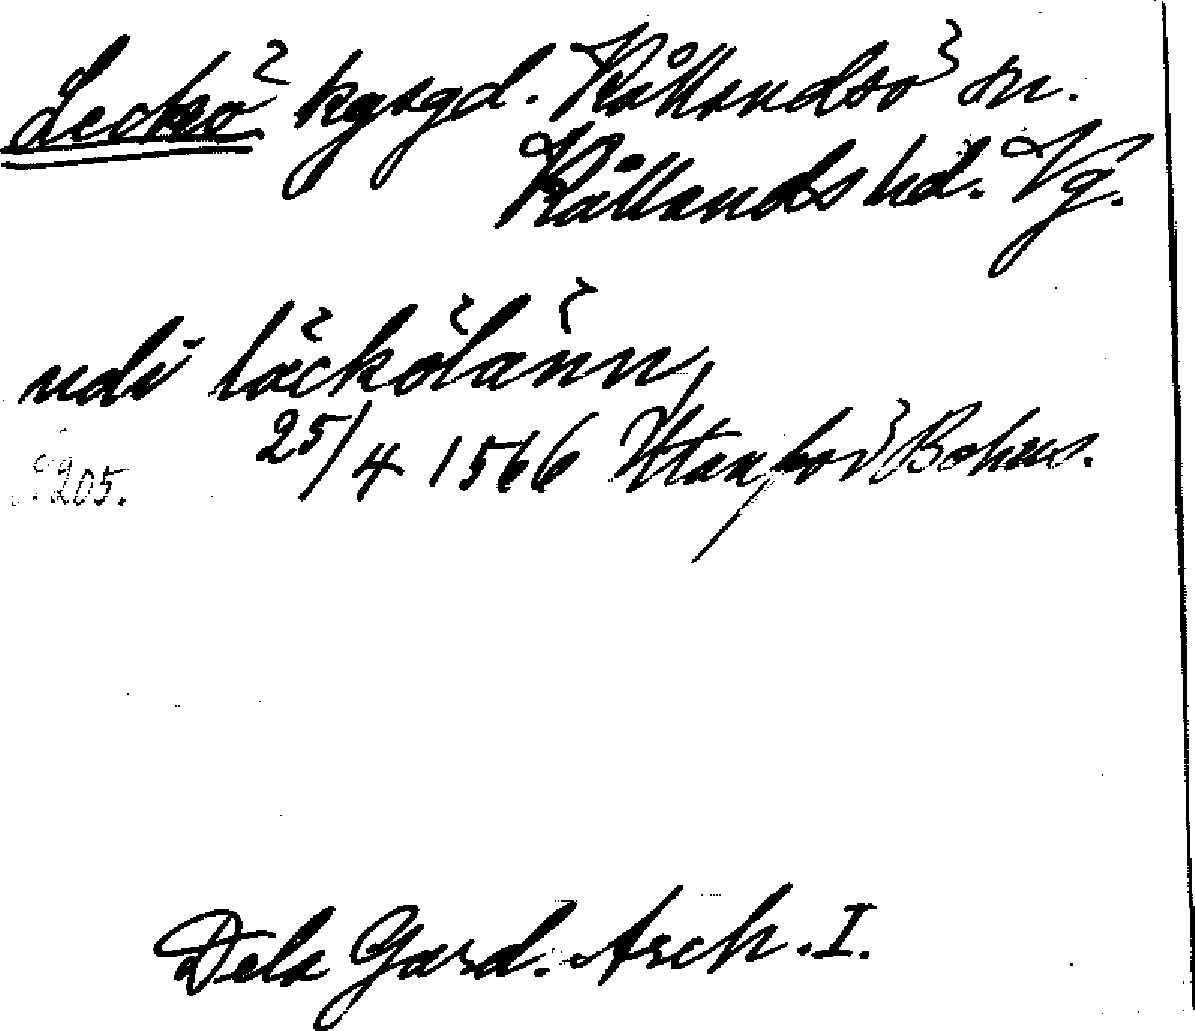 Leckö kgsgd. Kållandsö sn.
Kållands hd. Vg.
udi läckölänn,
25/4 1566 Utanför Bohus.
S. 205.
Dela Gard. Arch. I.